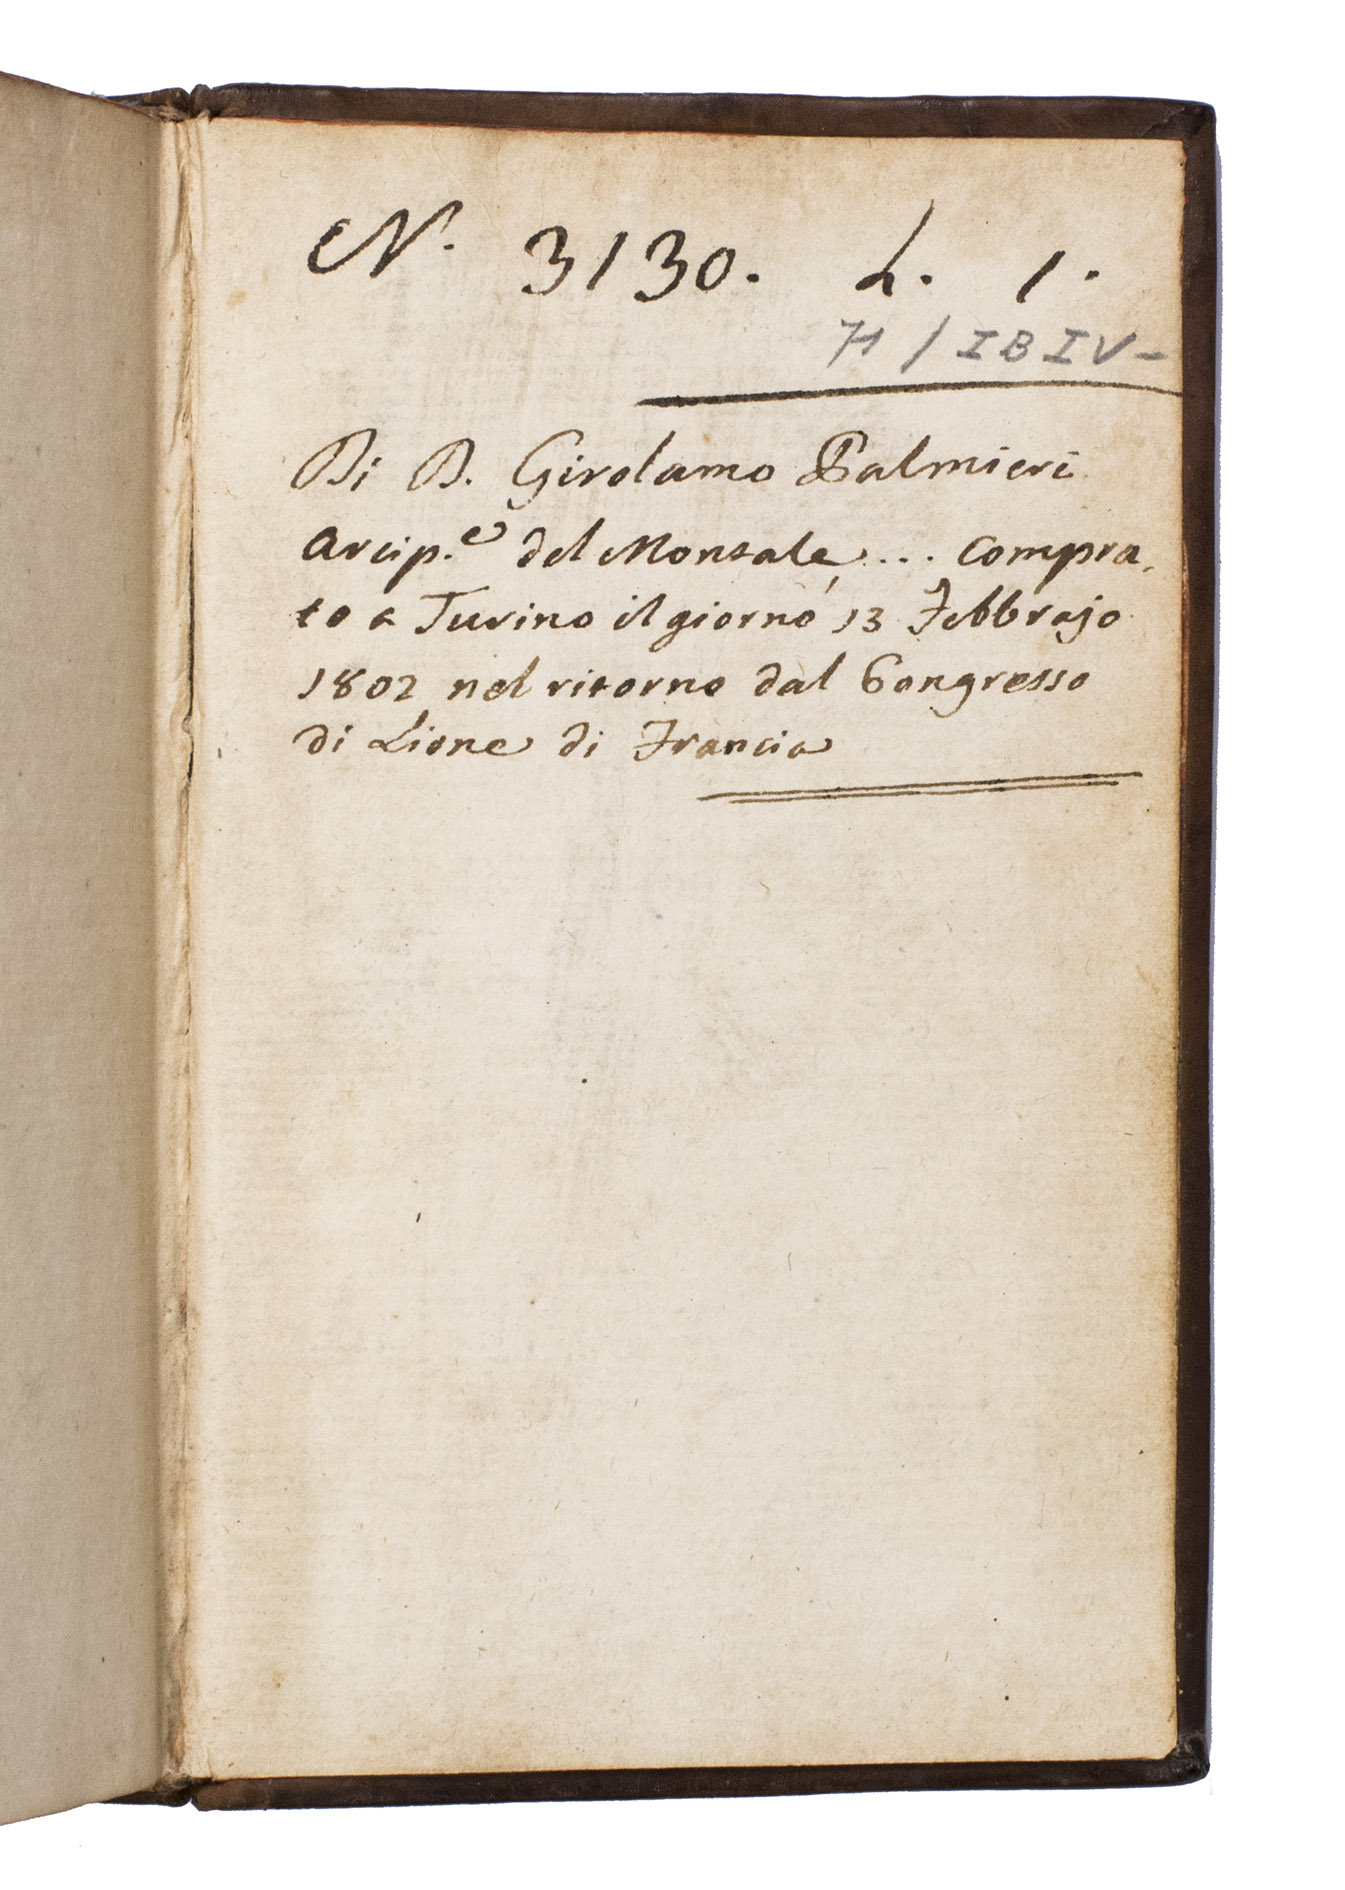 N. 3130. L. 1.
71 / IB IV-
Di D. Girolamo Palmieri
Arcip.e del Montale ... Compra,
to a Turino il giorno 13 Febbrajo
1802 nel ritorno dal Congresso
di Lione di Francia